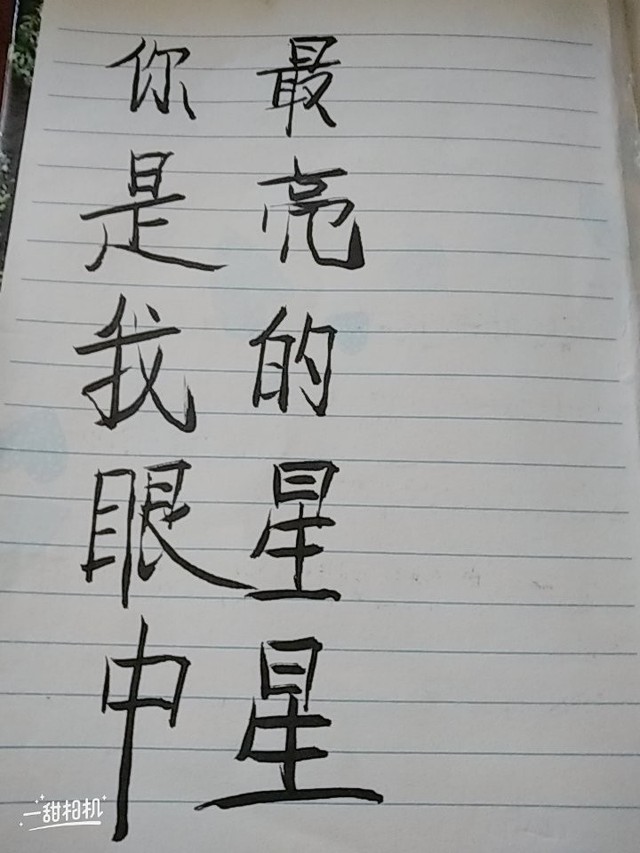 你是我眼中
最亮的星星
一甜相机